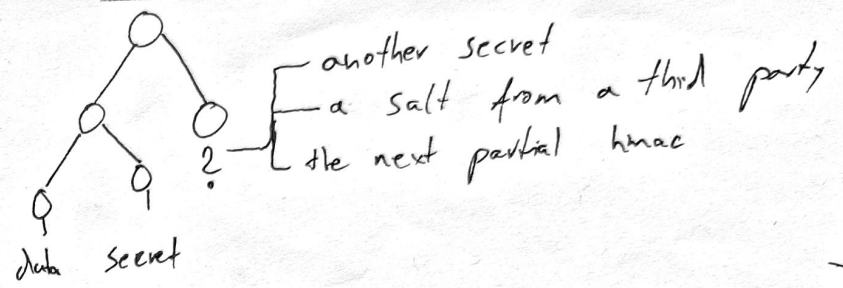 another secret
a salt from a third party
the next partial hmac
?
data secret